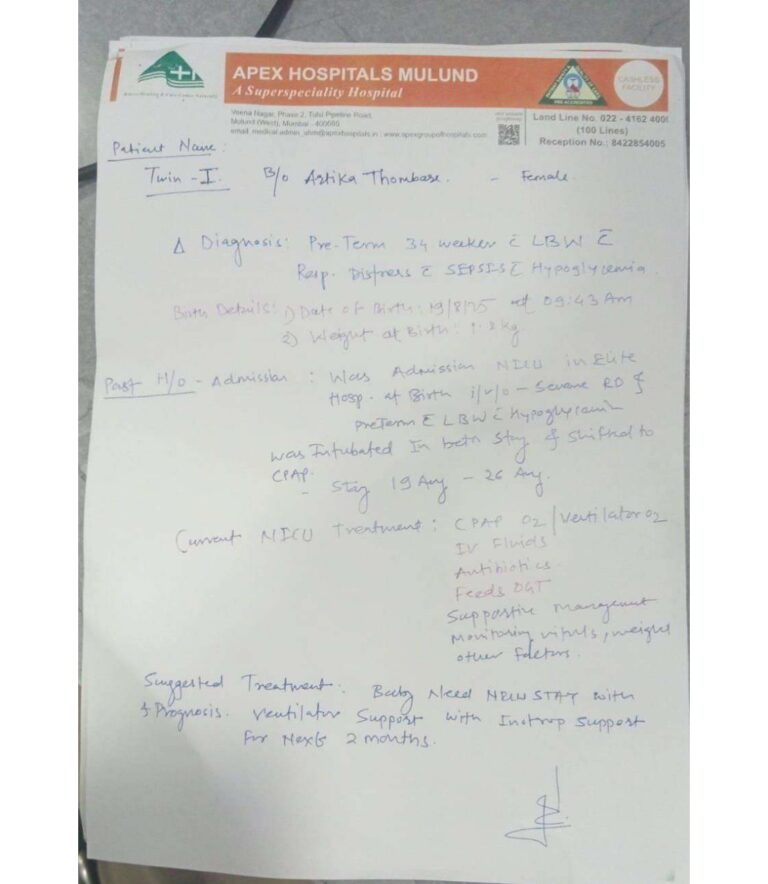 APEX HOSPITALS MULUND
A Superspeciality Hospital
CASHLESS FACILITY
Veena Nagar, Phase 2, Tulsi Pipeline Road,
Mulund (West), Mumbai - 400080
www.apexgroupofhospitals.com
Land Line No. 022 - 4162 400
(100 Lines)
Reception No.: 8422854005
Patient Name:
Twin - I. B/o Artika Thombase. - Female.
Δ Diagnosis: Pre-Term 34 weeker c̄ LBW c̄
Resp. Distress c̄ SEPSIS c̄ Hypoglycemia.
Birth Details: 1) Date of Birth: 19/8/25 at 09:43 Am
2) Weight at Birth: 1.8 kg.
Past H/o - Admission : Was Admission NICU in Elite
Hosp. at Birth i/v/o - Severe RD &
PreTerm c̄ LBW c̄ Hypoglycemia
was Intubated In beth stay & shifted to
CPAP.
- Stay 19 Aug - 26 Aug.
Current NICU Treatment : CPAP O2 / Ventilator O2
IV Fluids
Antibiotics.
Feeds OGT
Supportive management
Monitoring vitals, weight
other factors.
Suggested Treatment: Baby Need NICU STAY with
& Prognosis. Ventilator Support with Inotrop support
for Next 2 months.